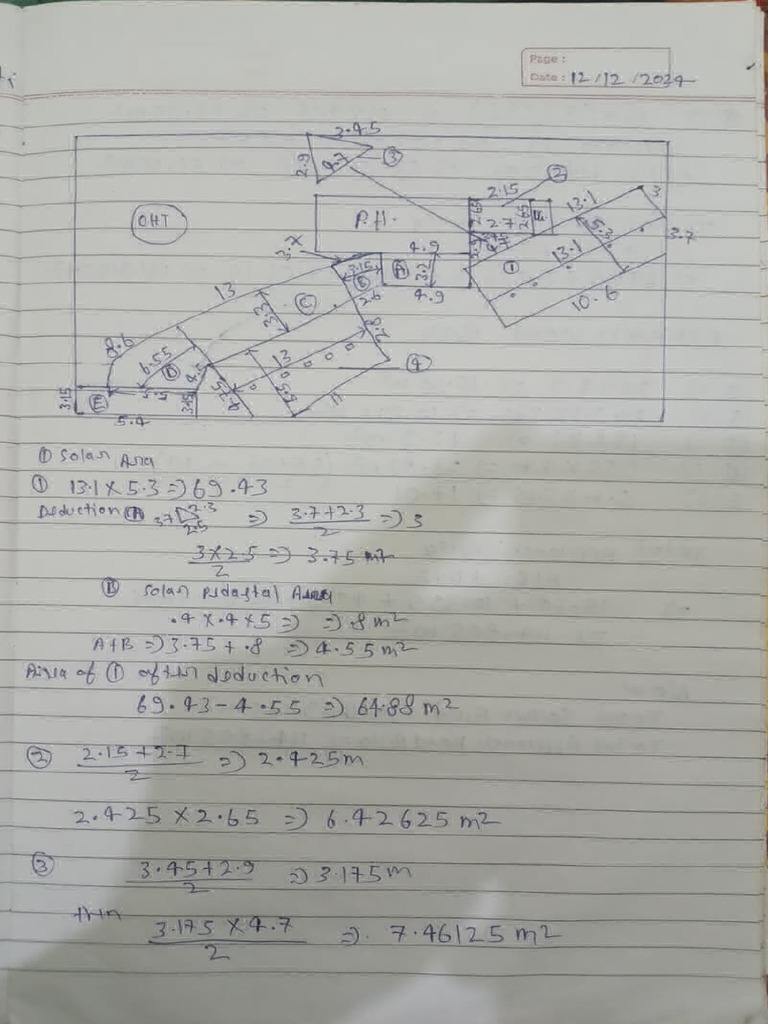 Page :
Date : 12/12/2024
3.45
2.9
4.7
③
②
2.15
2.65
2.7
2.65
13.1
3
5.3
3.7
OHT
P.H.
4.9
3.7
3.15
Ⓐ
3.2
Ⓑ
2.6
4.9
①
13.1
10.6
13
Ⓒ
3.3
2.8
8.6
6.55
Ⓓ
4.5
13
④
5.5
4.25
5.5
11
3.15
Ⓔ
3.15
5.4
① Solar Area
① 13.1 × 5.3 => 69.43
Deduction Ⓐ 3.7 2.3 2.5 => 3.7+2.3/2 => 3
3×2.5/2 => 3.75 m²
Ⓑ Solar pedastal Area
.4 × .4 × 5 => => .8 m²
A+B => 3.75 + .8 => 4.55 m²
Area of ① after deduction
69.43 - 4.55 => 64.88 m²
② 2.15 + 2.7/2 => 2.425m
2.425 × 2.65 => 6.42625 m²
③ 3.45 + 2.9/2 => 3.175m
3.175 × 4.7/2 => 7.46125 m²